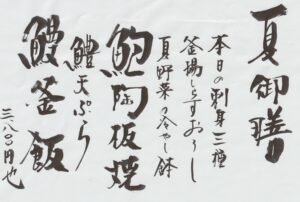 夏御膳
本日の刺身三種
釜揚しらすおろし
夏野菜の冷やし鉢
鮑陶板焼
鱧天ぷら
鱧釜飯
三八〇〇円也